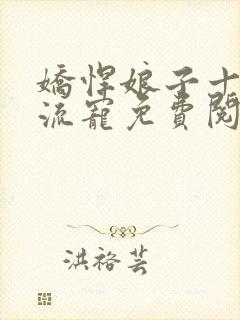 嬌悍娘子十
流寵免費閱
洪裕芸